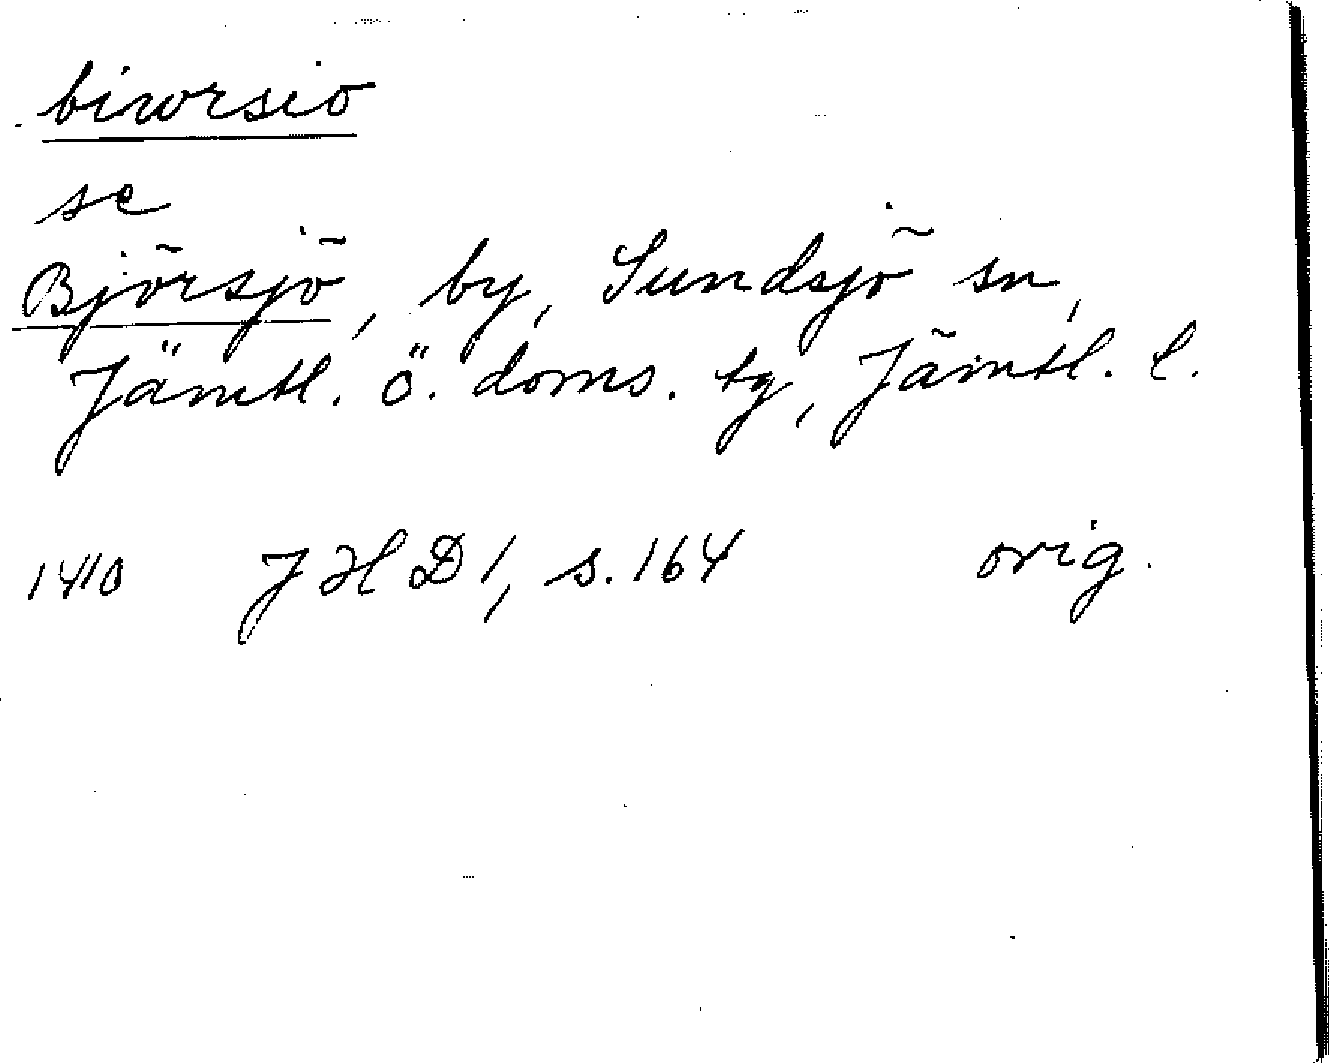 biworsio
se
Björsjö, by, Sundsjö sn,
Jämtl. ö. doms. tg, Jämtl. l.
1410 JHD 1, s. 164 orig.